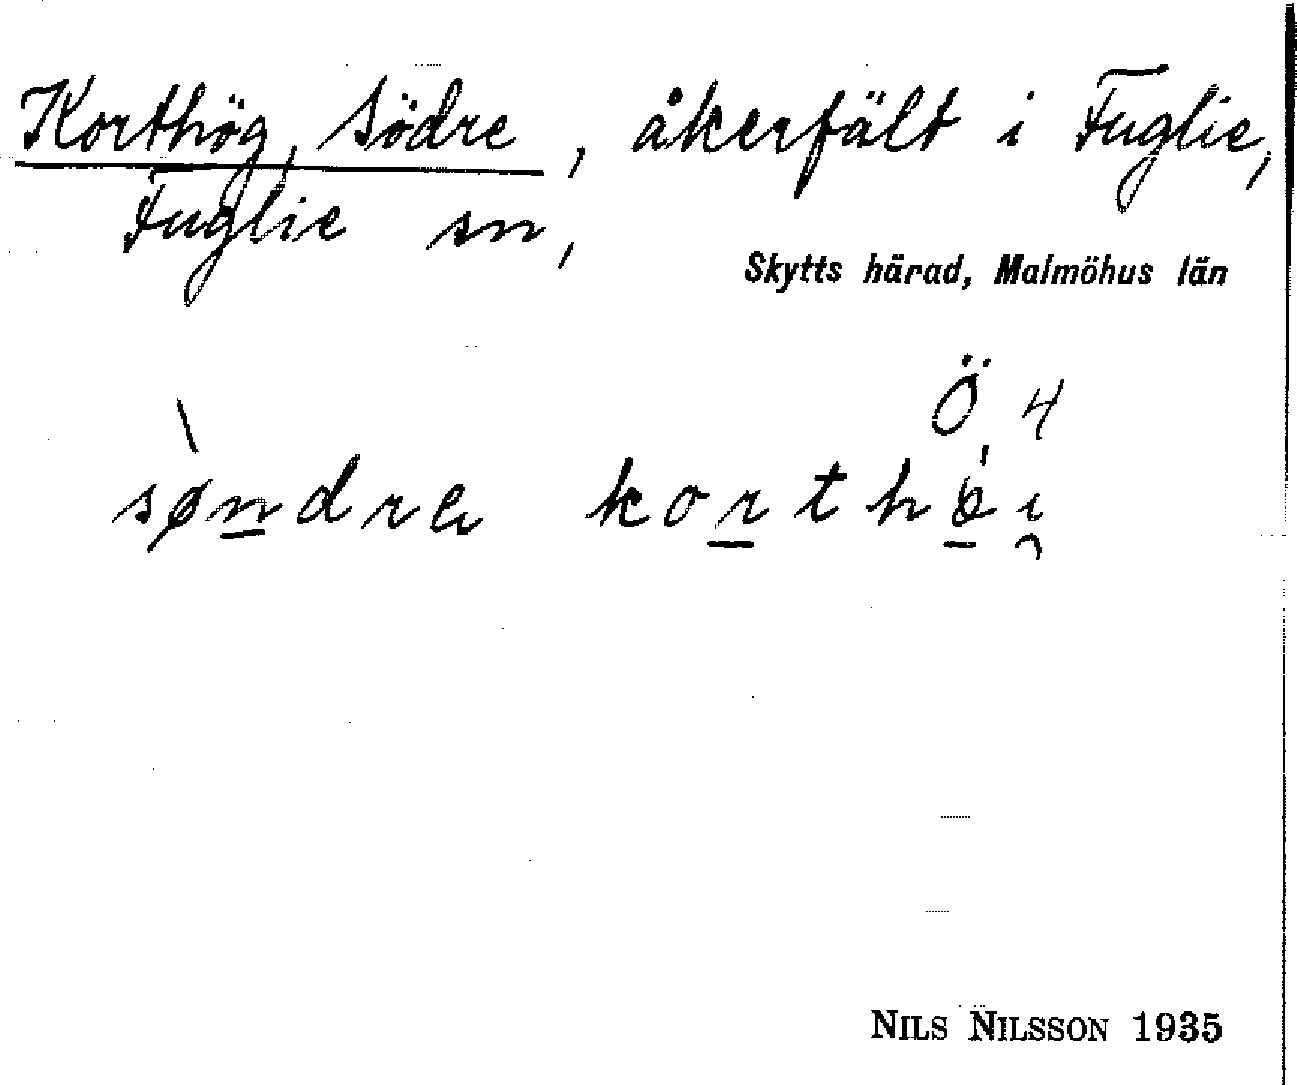 Korthög, Södre, åkerfält i Fuglie,
Fuglie sn,
Skytts härad, Malmöhus län
Ö 4
søndre korthøi
NILS NILSSON 1935